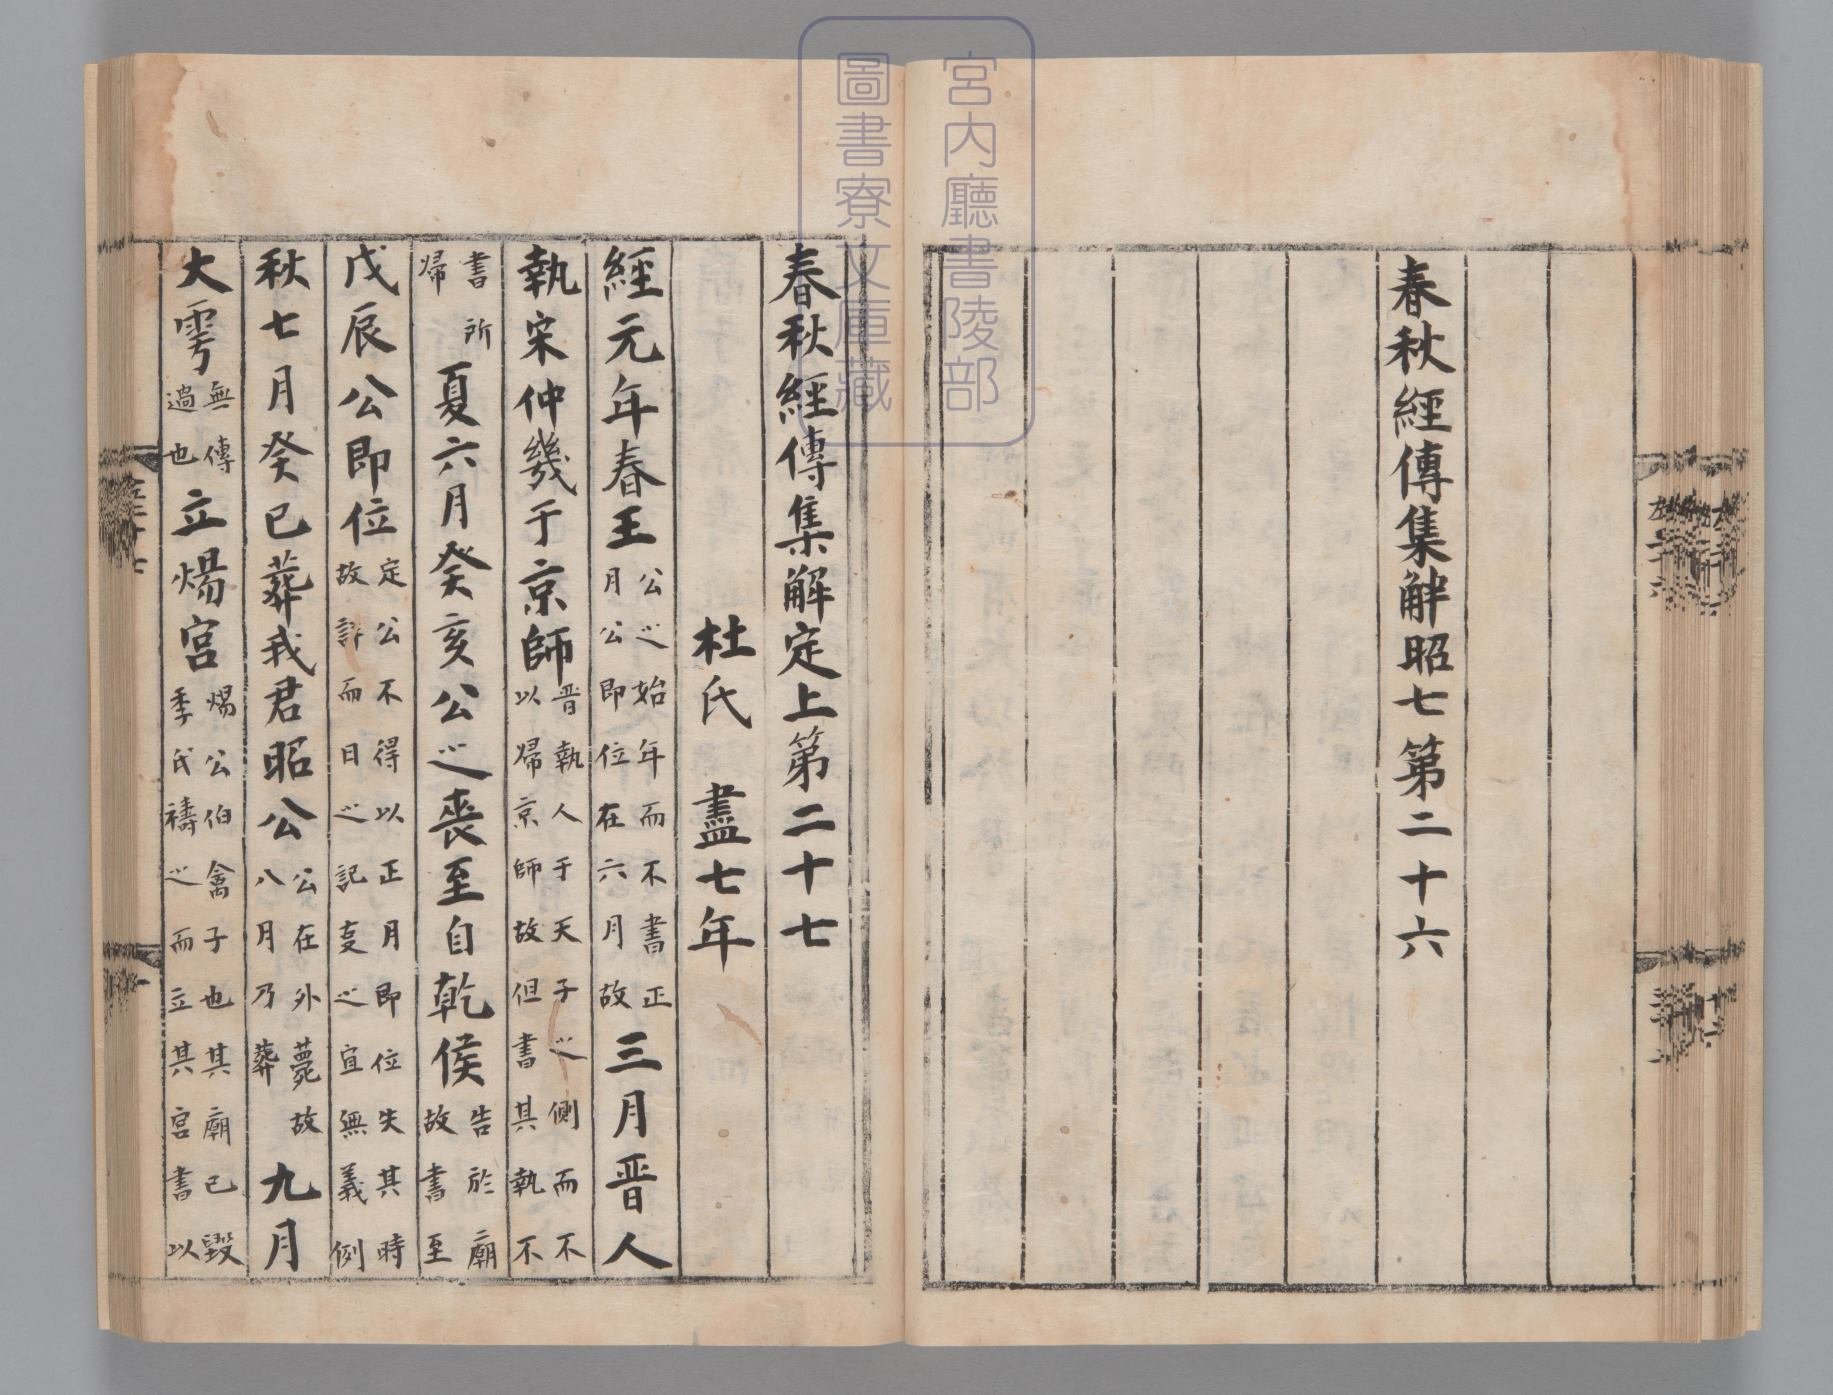 春秋經傳集解昭七第二十六
春秋經傳集解定上第二十七
杜氏　盡七年
經元年春王公之始年而不書正月公即位在六月故三月晉人
執宋仲幾于京師晉執人于天子之側而不以歸京師故但書其執不
書所歸夏六月癸亥公之喪至自乾侯告於廟故書至
戊辰公即位定公不得以正月即位失其時故詳而日之記事之宜無義例
秋七月癸巳葬我君昭公公在外薨故八月乃葬九月
大雩無傳過也立煬宮煬公伯禽子也其廟已毀季氏禱之而立其宮書以
宮內廳書陵部
圖書寮文庫藏